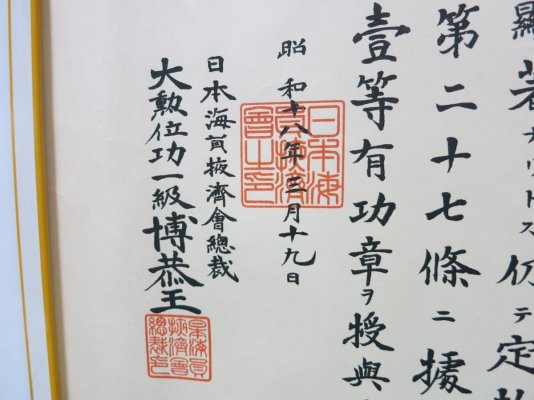 顯著ナリトス仍テ定
第二十七條ニ據
壹等有功章ヲ授與
昭和十八年三月十九日
日本海員掖濟會總裁
大勲位功一級博恭王
日本海
員掖濟
會之印
日本海員
掖濟會
總裁印